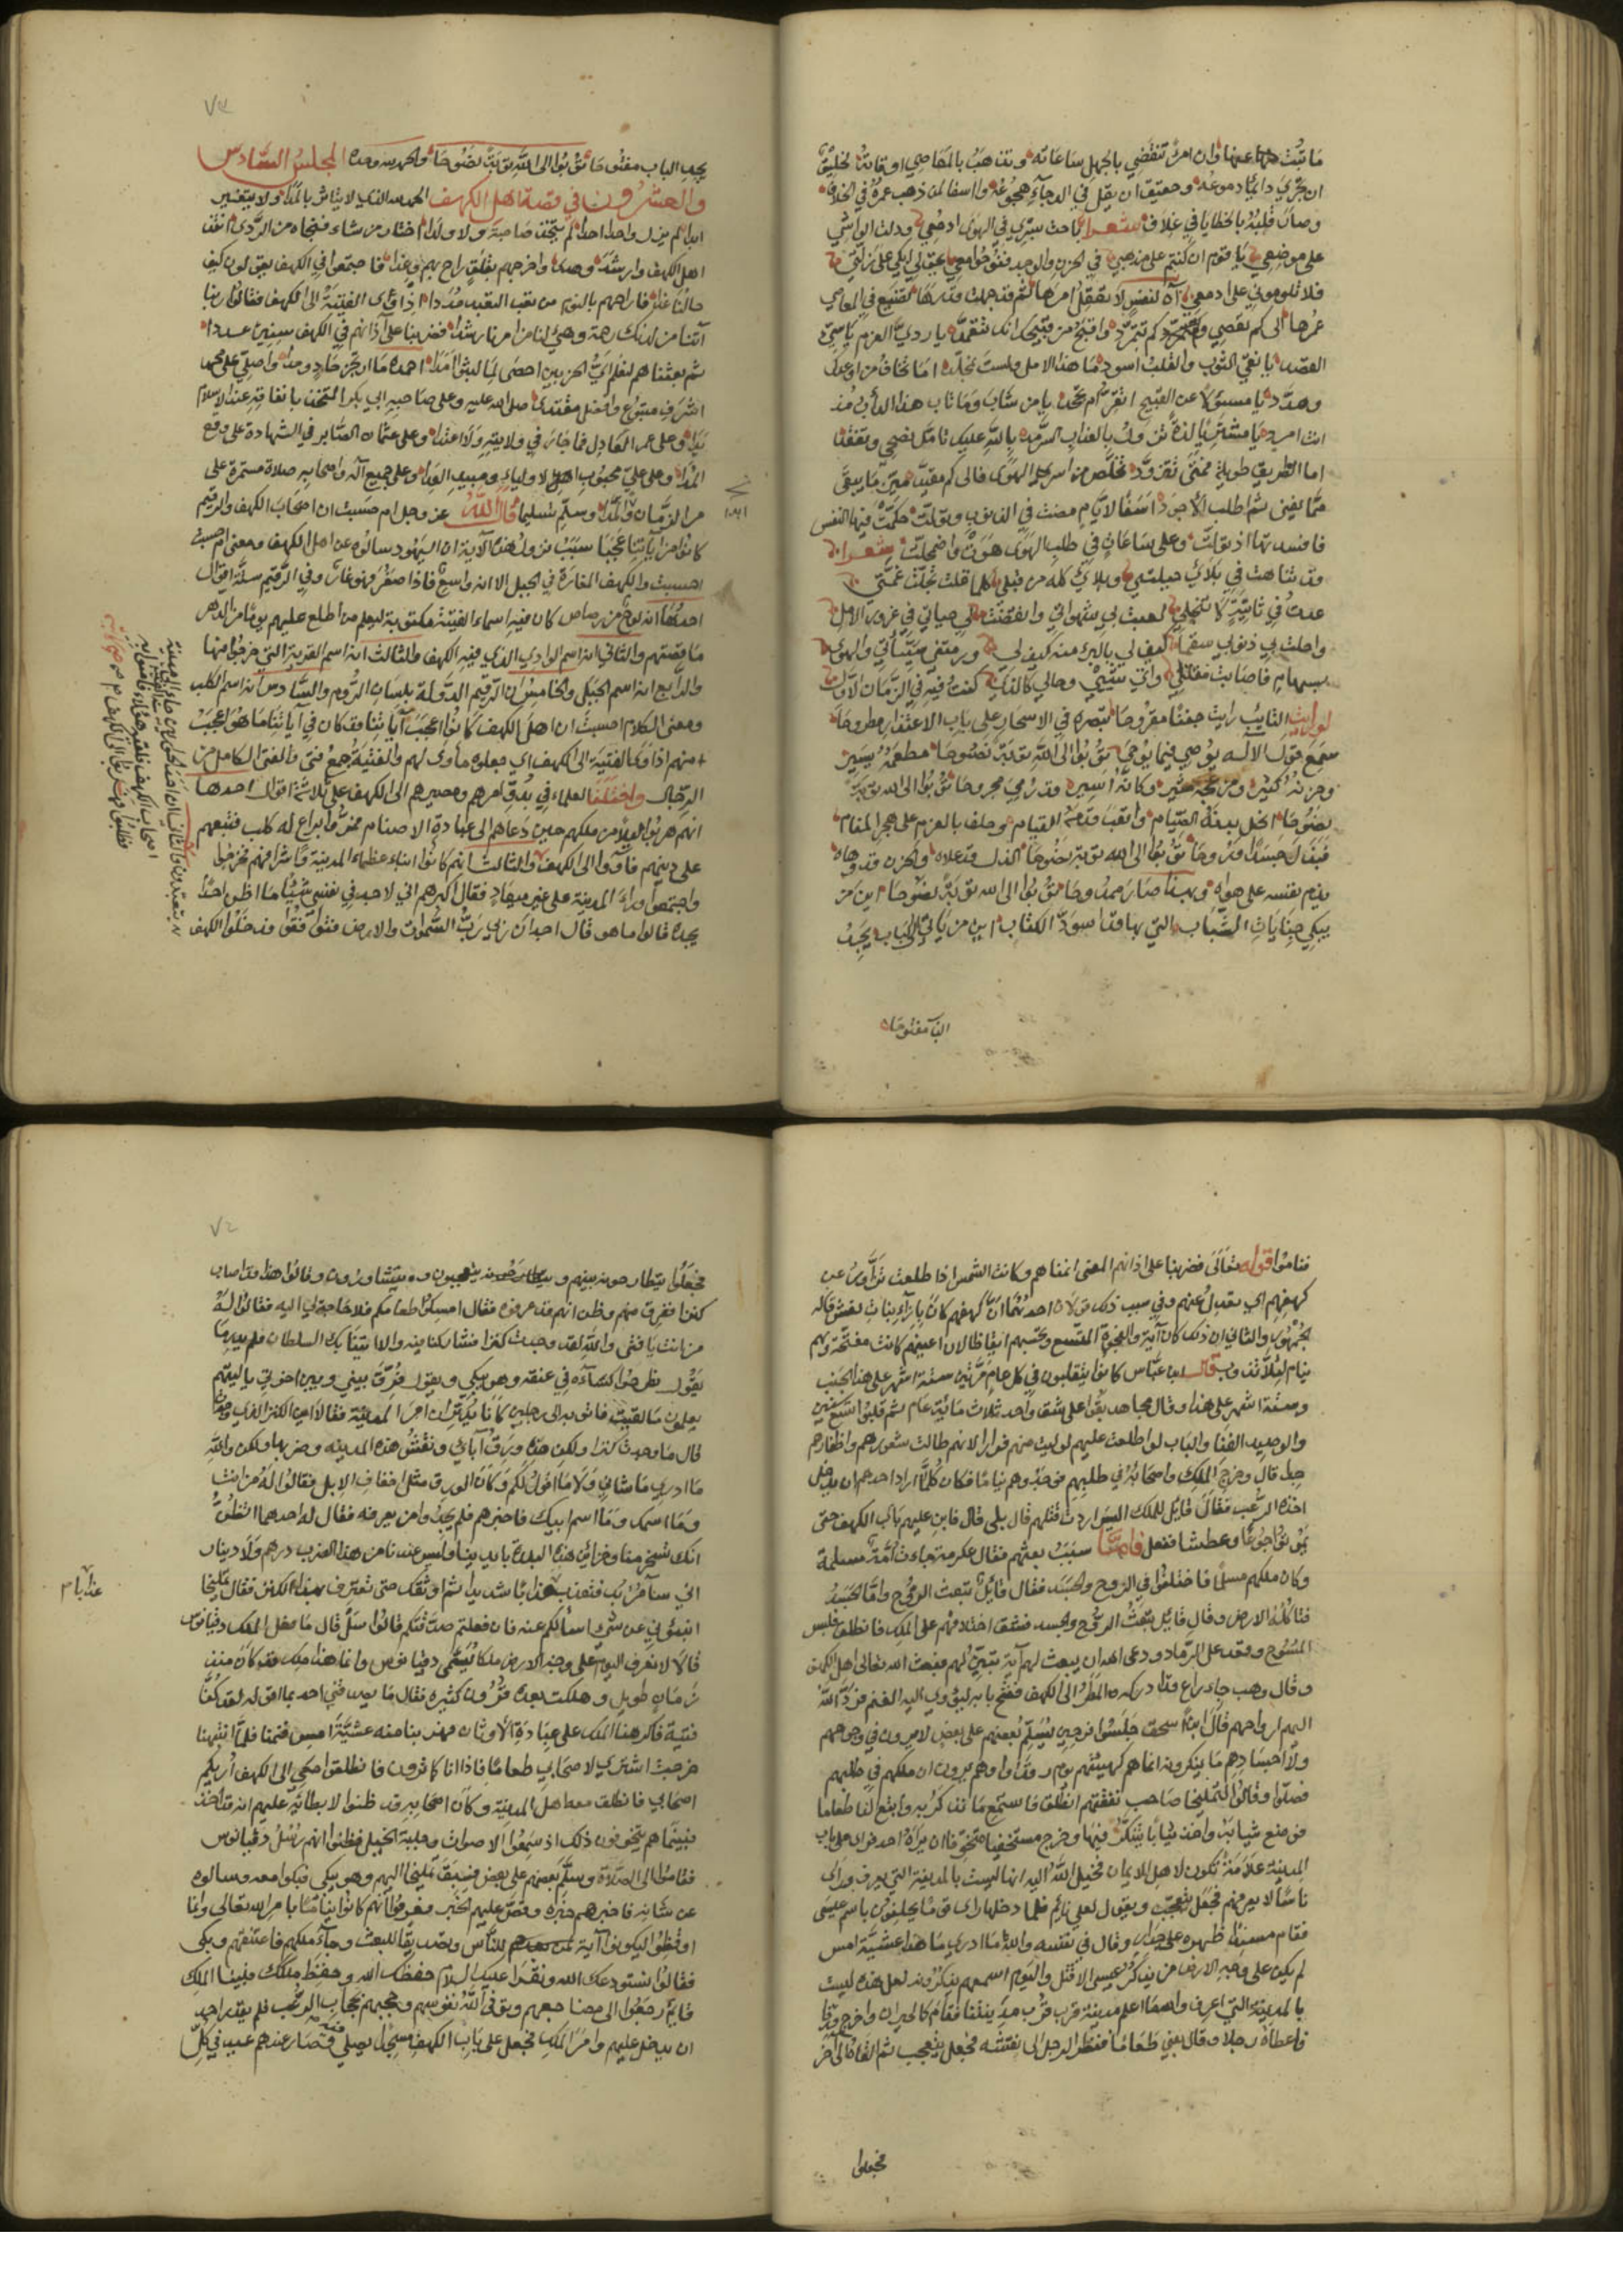 ما تبت عنها وان امرأ تنقضي بالجهل ساعاته وتذهب بالمعاصي اوقاته لخليق
ان تجري دائما دموعه وحقيق ان يقل في الدجا هجوعه واأسفا لمن ذهب عمره في الخلاف
وصار قلبه بالخطايا في غلاف شعر باحت بسري في الهوى ادمعي ودلت الواشي
على موضعي يا قوم ان كنتم على مذهبي في الحزن والوجد فنوحوا معي يحق لي ابكي على زلتي
فلا تلوموني على ادمعي آه لنفس لا تعقل امرها ثم قد جهلت قدرها تضيع في المعاصي
عمرها الى كم تعصي وتتمرد كم
القصد يا نقي الثوب والقلب اسود ما هذا الامل ولست بمخلد اما تخاف من اوعد
وهدد يا مسؤلا عن القبيح اتقر ام تجحد يا من شاب وما تاب هذا الدأب مذ
انت امرد يا مشتري لذة تزول بالعذاب السرمد بالله عليك تامل نصحي وتفقد
اما الطريق طويلة فمتى تتزود تخلص من اسر الهوى فالى كم مقيد ميز ما يبقى
مما يفنى ثم اطلب الاجود اسفا لايام مضت في الذنوب وتولت حكمت فيها النفس
فاقسدتها اذ تولت وعلى ساعات في طلب الهوى هوت واضمحلت شعر
قد تناهت في بلائي حيلتي وبلائي كله من قبلي كلما قلت تجلت غمتي
عدت في ثانية لا تنجلي لعبت بي شهواتي وانقضت لي حياتي في غرور الامل
واحلت بي ذنوبي سقما كيف لي بالبرء منه كيف لي ورمتني سيئاتي والهوى
بسهام فاصابت مقتلي وانى شيبي وحالي كالذي كنت فيه في الزمان الاول
لو رايت التايب رايت جفنا مقروحا تبصره في الاسحار على باب الاعتذار مطروحا
سمع قول الآله يوصي فيما يوحى توبوا الى الله توبة نصوحا مطعمه يسير
وحزنه كثير ومزعجه مثير وكانه اسير قد رمي مجروحا توبوا الى الله توبة
نصوحا انحل بدنه الصيام واتعب قدمه القيام وحلف بالعزم على هجر المنام
فبذل جسدا وروحا توبوا الى الله توبة نصوحا الذل قد علاه والحزن قد وهاه
يذم نفسه على هواه وبهذا صار ممدوحا توبوا الى الله توبة نصوحا اين من
يبكي جنايات الشباب التي بها قد اسود الكتاب اين من ياتي الى الباب يجد
الباب مفتوحا
٧٤
يجد الباب مفتوحا توبوا الى الله توبة نصوحا والحمد لله وحده المجلس السادس
والعشرون في قصة اهل الكهف الحمد لله الذي لا يتاثر بالمدا ولا يتغير
ابدا لم يزل واحدا احدا لم يتخذ صاحبة ولا ولدا اختار من شاء فنجاه من الردى انقذ
اهل الكهف وارشد وهدى واخرجهم بقلق راح بهم وغدا فاجتمعوا في الكهف يقولون كيف
حالنا غدا فاراحهم بالنوم من تعب التعبد مددا اذ اوى الفتية الى الكهف فقالوا ربنا
آتنا من لدنك رحمة وهيئ لنا من امرنا رشدا فضربنا على آذانهم في الكهف سنين عددا
ثم بعثناهم لنعلم اي الحزبين احصى لما لبثوا امدا احمده ما ارتجز حاد وحدا واصلي على محمد
اشرف متبوع وافضل مقتدى صلى الله عليه وعلى صاحبه ابي بكر المتخذ بانفاقه عند الاسلام
يدا وعلى عمر العادل فما جار في ولايته ولا اعتدا وعلى عثمان الصابر في الشهادة على وقع
المدا وعلى علي محبوب الاولياء ومبيد العدا وعلى جميع آله واصحابه صلاة مستمرة على
مر الزمان والمدا وسلم تسليما قال الله عز وجل ام حسبت ان اصحاب الكهف والرقيم
كانوا من آياتنا عجبا سبب نزول هذه الآية ان اليهود سالوه عن اهل الكهف ومعنى ام حسبت
احسبت والكهف المغارة في الجبل الا انه واسع فاذا صغر فهو غار وفي الرقيم ستة اقوال
احدها انه لوح من رصاص كان فيه اسماء الفتية مكتوبة ليعلم من اطلع عليهم يوما من الدهر
ما قصتهم والثاني انه اسم الوادي الذي فيه الكهف والثالث انه اسم القرية التي خرجوا منها
والرابع انه اسم الجبل والخامس ان الرقيم الدواة بلسان الروم والسادس انه اسم الكلب
ومعنى الكلام احسبت ان اهل الكهف كانوا اعجب آياتنا فقد كان في آياتنا ما هو اعجب
منهم اذ اوى الفتية الى الكهف اي جعلوه ماوى لهم والفتية جمع فتى والفتى الكامل من
الرجال واختلف العلماء في بدو امرهم ومصيرهم الى الكهف على ثلاثة اقوال احدها
انهم هربوا ليلا من ملكهم حين دعاهم الى عبادة الاصنام فمروا براع له كلب فتبعهم
على دينهم فاووا الى الكهف والثالث انهم كانوا ابناء عظماء المدينة واشرافهم فخرجوا
واجتمعوا وراء المدينة على غير ميعاد فقال اكبرهم اني لاجد في نفسي شيئا ما اظن احدا
يجده قالوا ما هو قال اجد ان ربي رب السموات والارض فتوافقوا فدخلوا الكهف
فناموا قوله تعالى فضربنا على آذانهم المعنى انمناهم وكانت الشمس اذا طلعت تزاور عن
كهفهم اي تعدل عنهم وفي سبب ذلك قولان احدهما ان كهفهم كان بازاء بنات نعش قاله
الجمهور والثاني ان ذلك كان آية وتحسبهم ايقاظا لان اعينهم كانت مفتحة وهم
نيام لئلا تذوب قال ابن عباس كانوا يتقلبون في كل عام مرتين ستة اشهر على هذا الجنب
وستة اشهر على هذا وقال مجاهد بقوا على شق واحد ثلاث مائة عام ثم قلبوا تسع سنين
والوصيد الفنا والباب لو اطلعت عليهم لوليت منهم فرارا لانهم طالت شعورهم واظفارهم
جدا قال وخرج الملك واصحابه في طلبهم فوجدوهم نياما فكان كلما اراد احدهم ان يدخل
اخذه الرعب فقال قايل للملك اليس اردت قتلهم قال بلى قال فابن عليهم باب الكهف حتى
يموتوا جوعا وعطشا ففعل فاما سبب بعثهم فقال عكرمة جاءت امة مسلمة
وكان ملكهم مسلما فاختلفوا في الروح والجسد فقال قايل تبعث الروح واما الجسد
فتاكله الارض وقال قايل تبعث الروح والجسد فشق اختلافهم على الملك فانطلق فلبس
المسوح وقعد على الرماد ودعى الله ان يبعث لهم آية تبين لهم فبعث الله تعالى اهل الكهف
وقال وهب جاء راع قد ادركه المطر الى الكهف ففتح بابه ليؤوي اليه الغنم فرد الله
اليهم ارواحهم قال ابن اسحق جلسوا فرحين يسلم بعضهم على بعض لا يرون في وجوههم
ولا اجسادهم ما ينكرونه انما هم كهيئتهم يوم رقدوا وهم يرون ان ملكهم في طلبهم
فصلوا وقالوا لتمليخا صاحب نفقتهم انطلق فاستمع ما نذكر به وابتع لنا طعاما
فوضع ثيابه واخذ ثيابا يتنكر فيها وخرج مستخفيا متخوفا ان يراه احد فراى على باب
المدينة علامة تكون لاهل الايمان فخيل الله اليه انها ليست بالمدينة التي يعرف وراى
ناسا لا يعرفهم فجعل يتعجب ويقول لعلي نائم فلما دخلها راى قوما يحلفون باسم عيسى
فقام مسندا ظهره على جدار وقال في نفسه والله ما ادري ما هذا عشية امس
لم يكن على وجه الارض من يذكر عيسى الا قتل واليوم اسمعهم يذكرونه لعل هذه ليست
بالمدينة التي اعرف والله ما اعلم مدينة قرب مدينتنا فقام كالحيران واخرج ورقا
فاعطاه رجلا وقال بعني طعاما فنظر الرجل الى نقشه فجعل يتعجب ثم القاه الى اخر
فجعلوا
٧٥
فجعلوا يتطارحونه بينهم ويتعجبون ويتشاورون وقالوا هذا قد اصاب
كنزا ففرق منهم وظن انهم قد عرفوه فقال امسكوا طعامكم فلا حاجة لي اليه فقالوا له
من انت يا فتى والله لقد وجدت كنزا فشاركنا فيه والا اتينا بك السلطان فلم يدر ما
يقول فطرحوا كساءه في عنقه وهو يبكي ويقول فرق بيني وبين اخوتي يا ليتهم
يعلمون ما لقيت فاتوا به الى رجلين كانا يدبران امر المدينة فقالا اين الكنز الذي وجدت
قال ما وجدت كنزا ولكن هذه ورق آبائي ونقش هذه المدينة وضربها ولكن والله
ما ادري ما شاني ولا ما اقول لكم وكان الورق مثل اخفاف الابل فقالوا له من انت
وما اسمك وما اسم ابيك فاخبرهم فلم يجدوا من يعرفه فقال له احدهما اتظن
انك تسخر منا وخزائن هذه البلدة بايدينا وليس عندنا من هذا الضرب درهم ولا دينار
اني سآمر بك فتعذب عذابا شديدا ثم اوثقك حتى تعترف بهذا الكنز فقال تمليخا
انبئوني عن شيء اسالكم عنه فان فعلتم صدقتكم قالوا سل قال ما فعل الملك دقيانوس
قالا لا نعرف اليوم على وجه الارض ملكا يسمى دقيانوس وانما هذا ملك قد كان منذ
زمان طويل وهلكت بعده قرون كثيرة فقال ما يصدقني احد بما اقوله لقد كنا
فتية فاكرهنا الملك على عبادة الاوثان فهربنا منه عشية امس فنمنا فلما انتبهنا
خرجت اشتري لاصحابي طعاما فاذا انا كما ترون فانطلقوا معي الى الكهف اريكم
اصحابي فانطلقوا معه اهل المدينة وكان اصحابه قد ظنوا لابطائه عليهم انه قد اخذ
فبينما هم يتخوفون ذلك اذ سمعوا الاصوات وجلبة الخيل فظنوا انهم رسل دقيانوس
فقاموا الى الصلاة وسلم بعضهم على بعض فسبق تمليخا اليهم وهو يبكي فبكوا معه وسالوه
عن شانه فاخبرهم خبره وقص عليهم الخبر فعرفوا انهم كانوا نياما بامر الله تعالى وانما
اوقظوا ليكونوا آية للناس وتصديقا للبعث وجاء ملكهم فاعتنقهم وبكى
فقالوا نستودعك الله ونقرا عليك السلام حفظك الله وحفظ ملكك فبينا الملك
قايم رجعوا الى مضاجعهم وتوفى الله نفوسهم وحجبهم بحجاب الرعب فلم يقدر احد
ان يدخل عليهم وامر الملك فجعل على باب الكهف مسجدا يصلى فيه وصار عندهم عيد في كل